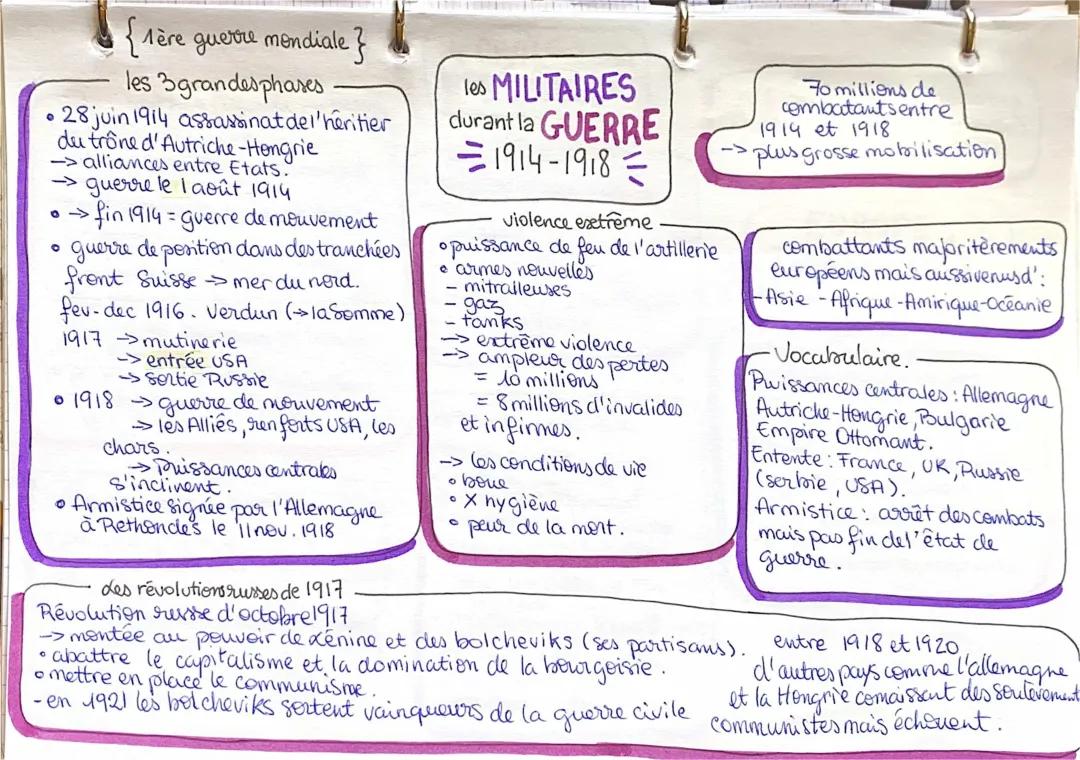 { 1ère guerre mondiale }
les 3 grandes phases
• 28 juin 1914 assassinat de l'hêritier
du trône d'Autriche-Hongrie
-> alliances entre Etats.
-> guerre le 1 août 1914
• -> fin 1914 = guerre de mouvement
• guerre de position dans des tranchées
front Suisse -> mer du nord.
fev-dec 1916. Verdun (-> la Somme)
1917 -> mutinerie
-> entrée USA
-> sortie Russie
• 1918 -> guerre de mouvement
-> les Alliés, renforts USA, les
chars.
-> Puissances centrales
s'inclinent.
• Armistice signée par l'Allemagne
à Rethondes le 11 nov. 1918
les MILITAIRES
durant la GUERRE
1914-1918
violence extrême
• puissance de feu de l'artillerie
• armes nouvelles
- mitralleuses
- gaz
- tanks
-> extrême violence
-> ampleur des pertes
= 10 millions
= 8 millions d'invalides
et infirmes.
-> les conditions de vie
• boue
• X hygiène
• peur de la mort.
70 millions de
combatants entre
1914 et 1918
-> plus grosse mobilisation
combattants majoritèrements
européens mais aussi venus d':
- Asie - Afrique - Amirique - Océanie
Vocabulaire.
Puissances centrales : Allemagne
Autriche-Hongrie, Bulgarie
Empire Ottomant.
Entente : France, UK, Russie
(serbie, USA).
Armistice : arrêt des combats
mais pas fin de l'êtat de
guerre.
des révolutions russes de 1917
Révolution russe d'octobre 1917
-> montée au pouvoir de Lénine et des bolcheviks (ses partisans).
• abattre le capitalisme et la domination de la bourgoisie.
• mettre en place le communisme.
- en 1921 les bolcheviks sortent vainqueurs de la guerre civile
entre 1918 et 1920
d'autres pays comme l'allemagne
et la Hongrie connaissent des soulèvement
communistes mais échouent.